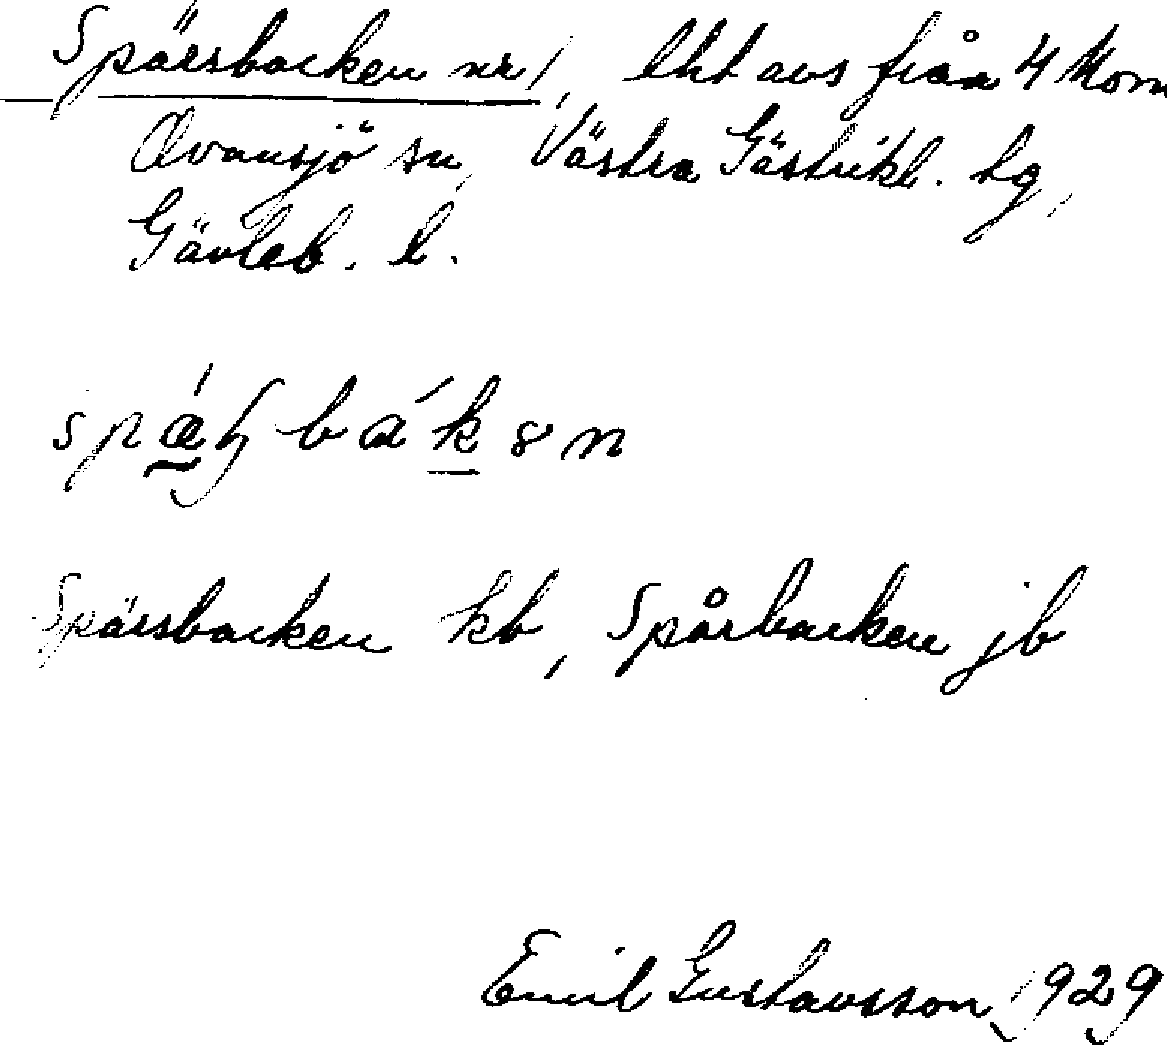 Spärsbacken nr 1, lht avs från 4 Mom
Ovansjö sn, Västra Gästrikl. tg,
Gävleb. l.
Spärsbacken kb, Spårbacken jb
Emil Gustavsson 1929